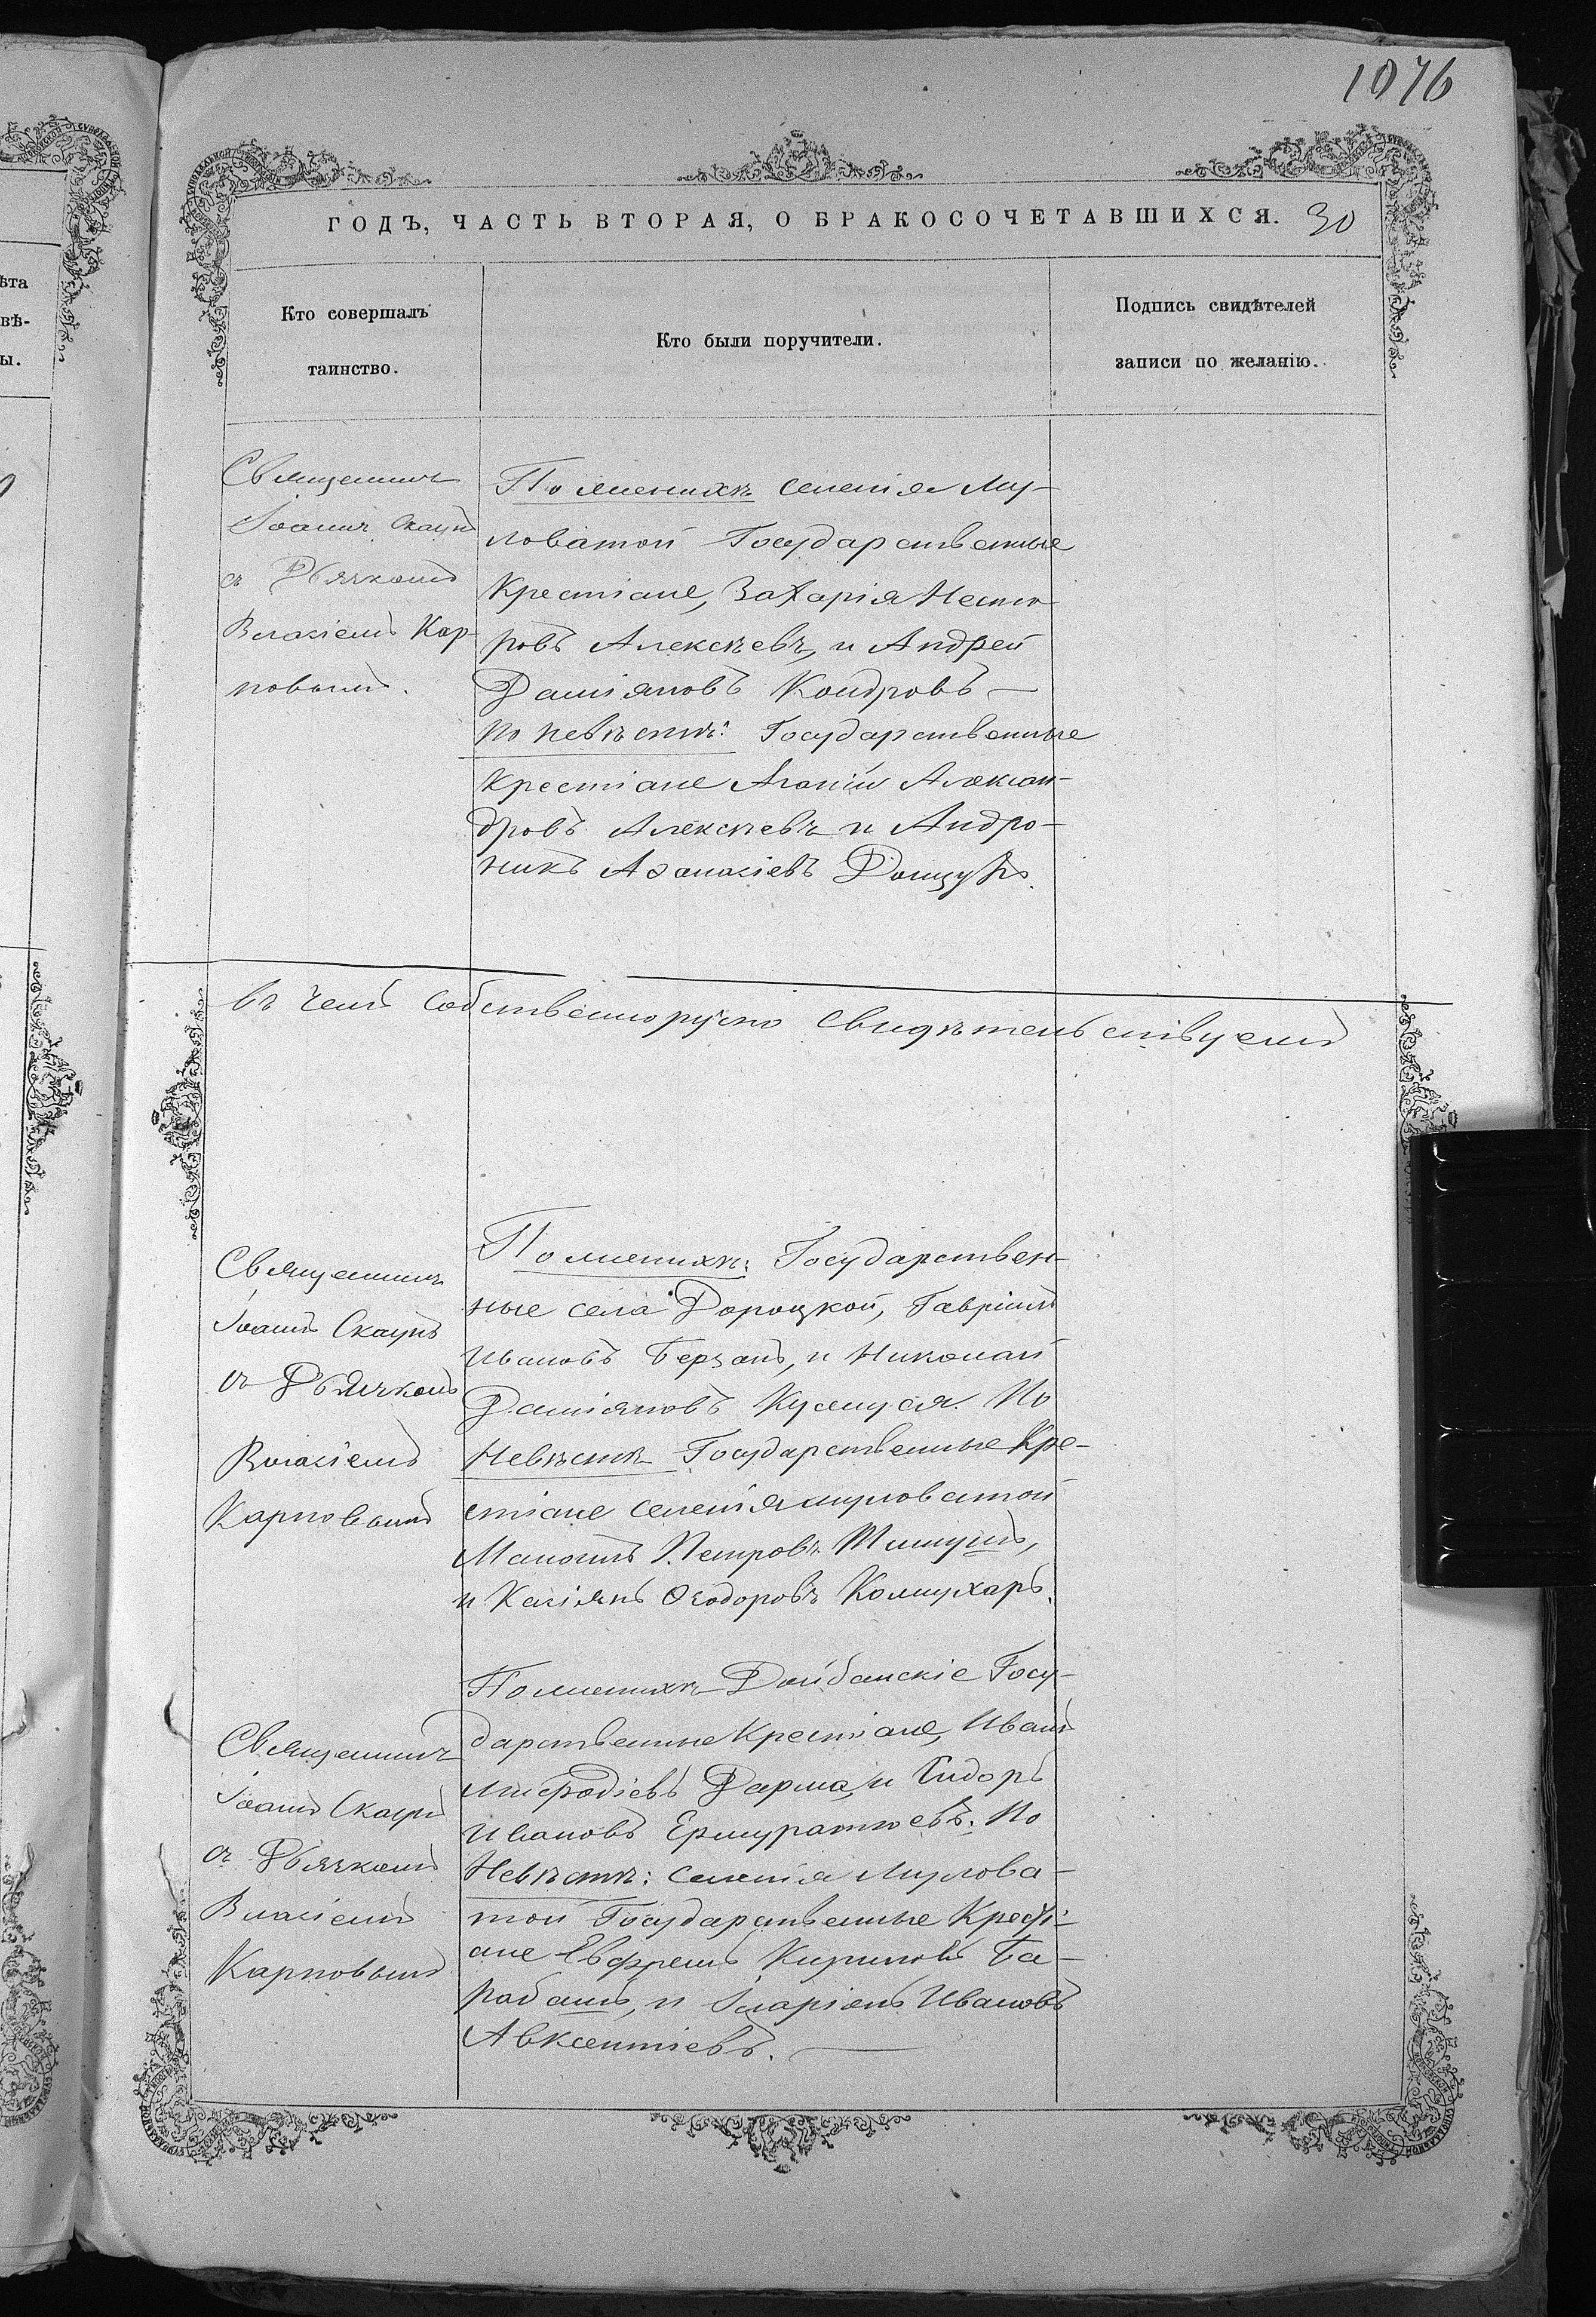 1076
ГОДЪ, ЧАСТЬ ВТОРАЯ, О БРАКОСОЧЕТАВШИХСЯ. 30
Кто совершалъ
таинство.
Кто были поручители.
Подпись свидѣтелей
записи по желанію.
Священникъ
Іоаннъ Скаунъ
съ Дьячкомъ
Власіемъ Кар-
повымъ.
По женихѣ селенія Му-
ловатой Государственные
Крестіане, Захарія Несто-
ровъ Алексѣевъ, и Андрей
Даміяновъ Кондровъ —
по невѣстѣ: Государственные
Крестіане Агапій Алексан-
дровъ Алексѣевъ и Андро-
никъ Аѳанасіевъ
въ чемъ собственноручно свидѣтельствуемъ
Священникъ
Іоаннъ Скаунъ
съ Дьячкомъ
Власіемъ
Карповымъ
По женихѣ: Государствен-
ные села Дороцкой, Гавріилъ
Ивановъ Берзанъ, и Николай
Даміяновъ По
Невѣстѣ Государственные Кре-
стіане селенія муловатой
Петровъ
и Касіянъ Ѳеодоровъ
Священникъ
Іоаннъ Скаунъ
съ Дьячкомъ
Власіемъ
Карповымъ
По женихѣ Дойбанскіе Госу-
дарственные Крестіане, Иванъ
Меѳодіевъ Дарма, и Сидоръ
Ивановъ Ермуратіевъ. По
Невѣстѣ: селенія Мулова-
той Государственные Кресті-
ане Евфремъ Кириловъ Ба-
рабашъ, и Іларіонъ Ивановъ
Авксентіевъ.
ѣта
вѣ-
ы.